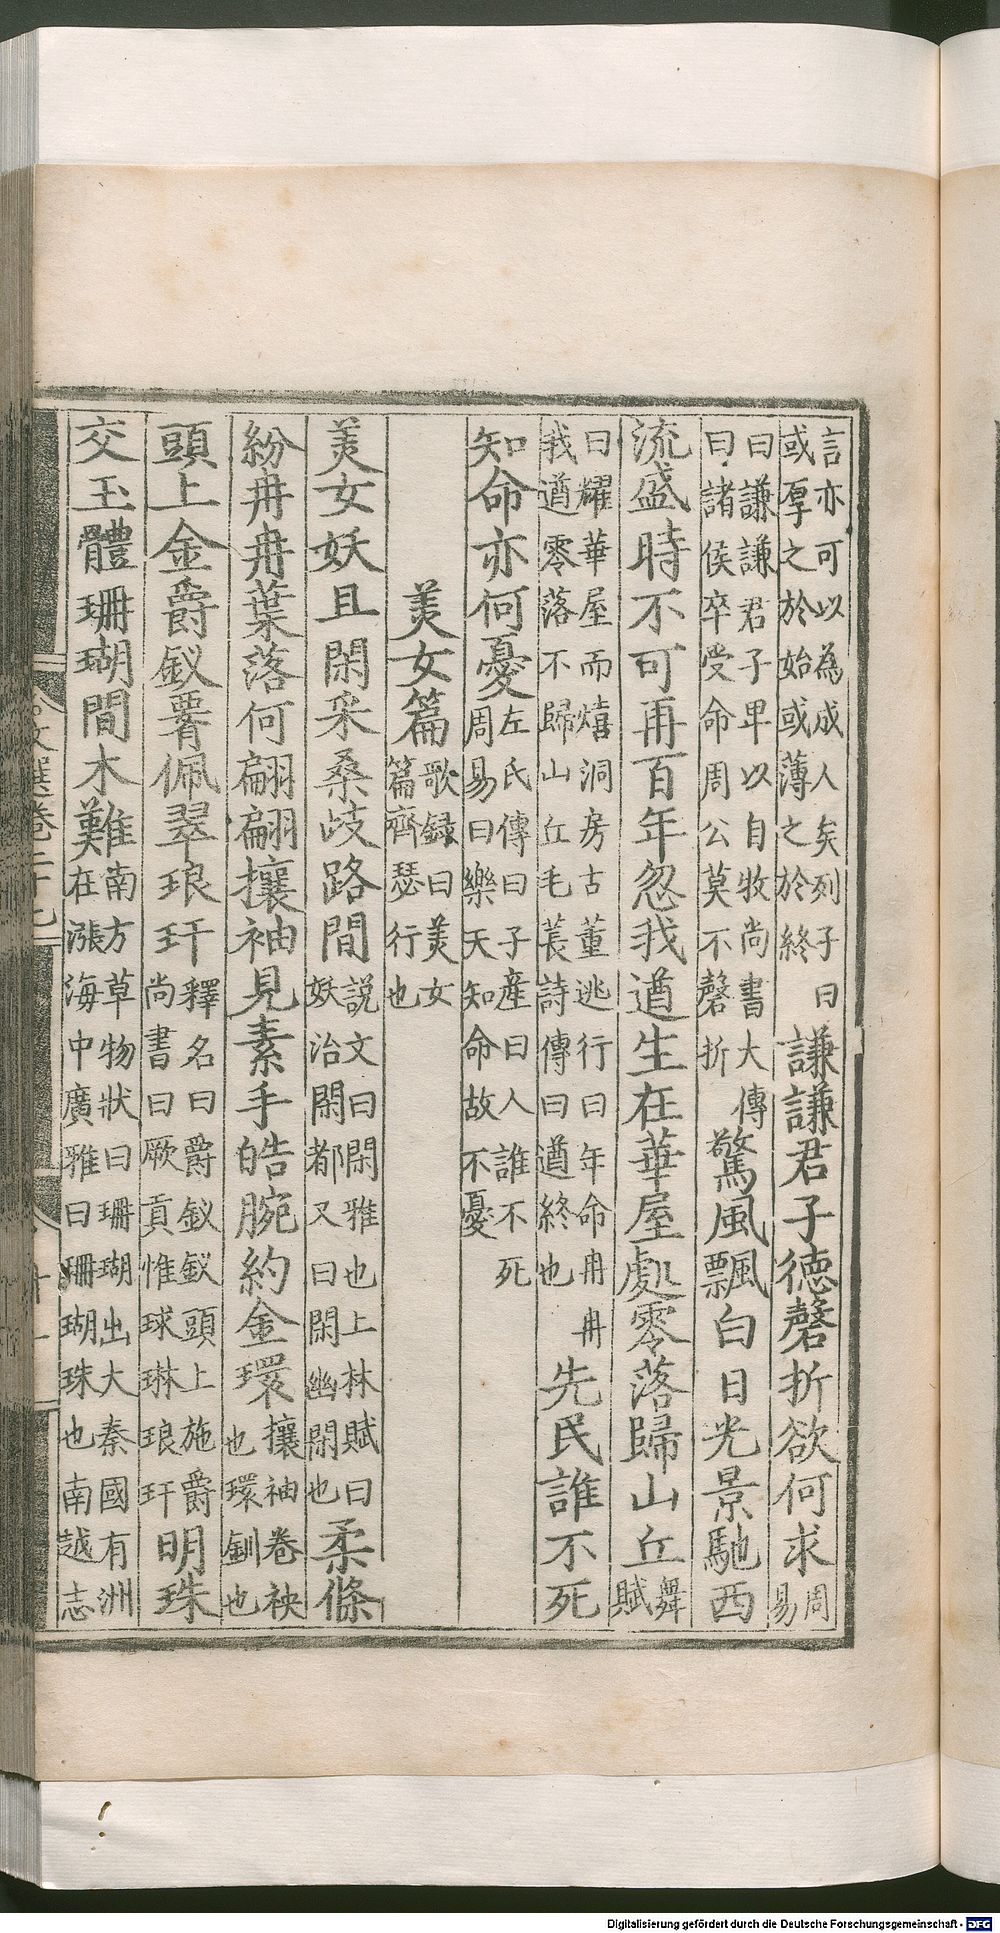 言亦可以為成人矣列子曰
或厚之於始或薄之於終
謙謙君子德磬折欲何求周易
曰謙謙君子卑以自牧尚書大傳
曰諸侯卒受命周公莫不磬折
驚風飄白日光景馳西
流盛時不可再百年忽我遒生在華屋處零落歸山丘舞賦
曰耀華屋而熺洞房古董逃行曰年命冉冉
我遒零落不歸山丘毛萇詩傳曰遒終也
先民誰不死
知命亦何憂
左氏傳曰子產曰人誰不死
周易曰樂天知命故不憂
美女篇
歌録曰美女
篇齊瑟行也
美女妖且閑采桑歧路間
説文曰閑雅也上林賦曰
妖治閑都又曰閑幽閑也
柔條
紛冉冉葉落何翩翩攘袖見素手皓腕約金環
攘袖卷袂
也環釧也
頭上金爵釵腰佩翠琅玕
釋名曰爵釵釵頭上施爵
尚書曰厥貢惟球琳琅玕
明珠
交玉體珊瑚間木難
南方草物狀曰珊瑚出大秦國有洲
在漲海中廣雅曰珊瑚珠也南越志
文選卷二十七
十一
Digitalisierung gefördert durch die Deutsche Forschungsgemeinschaft - DFG